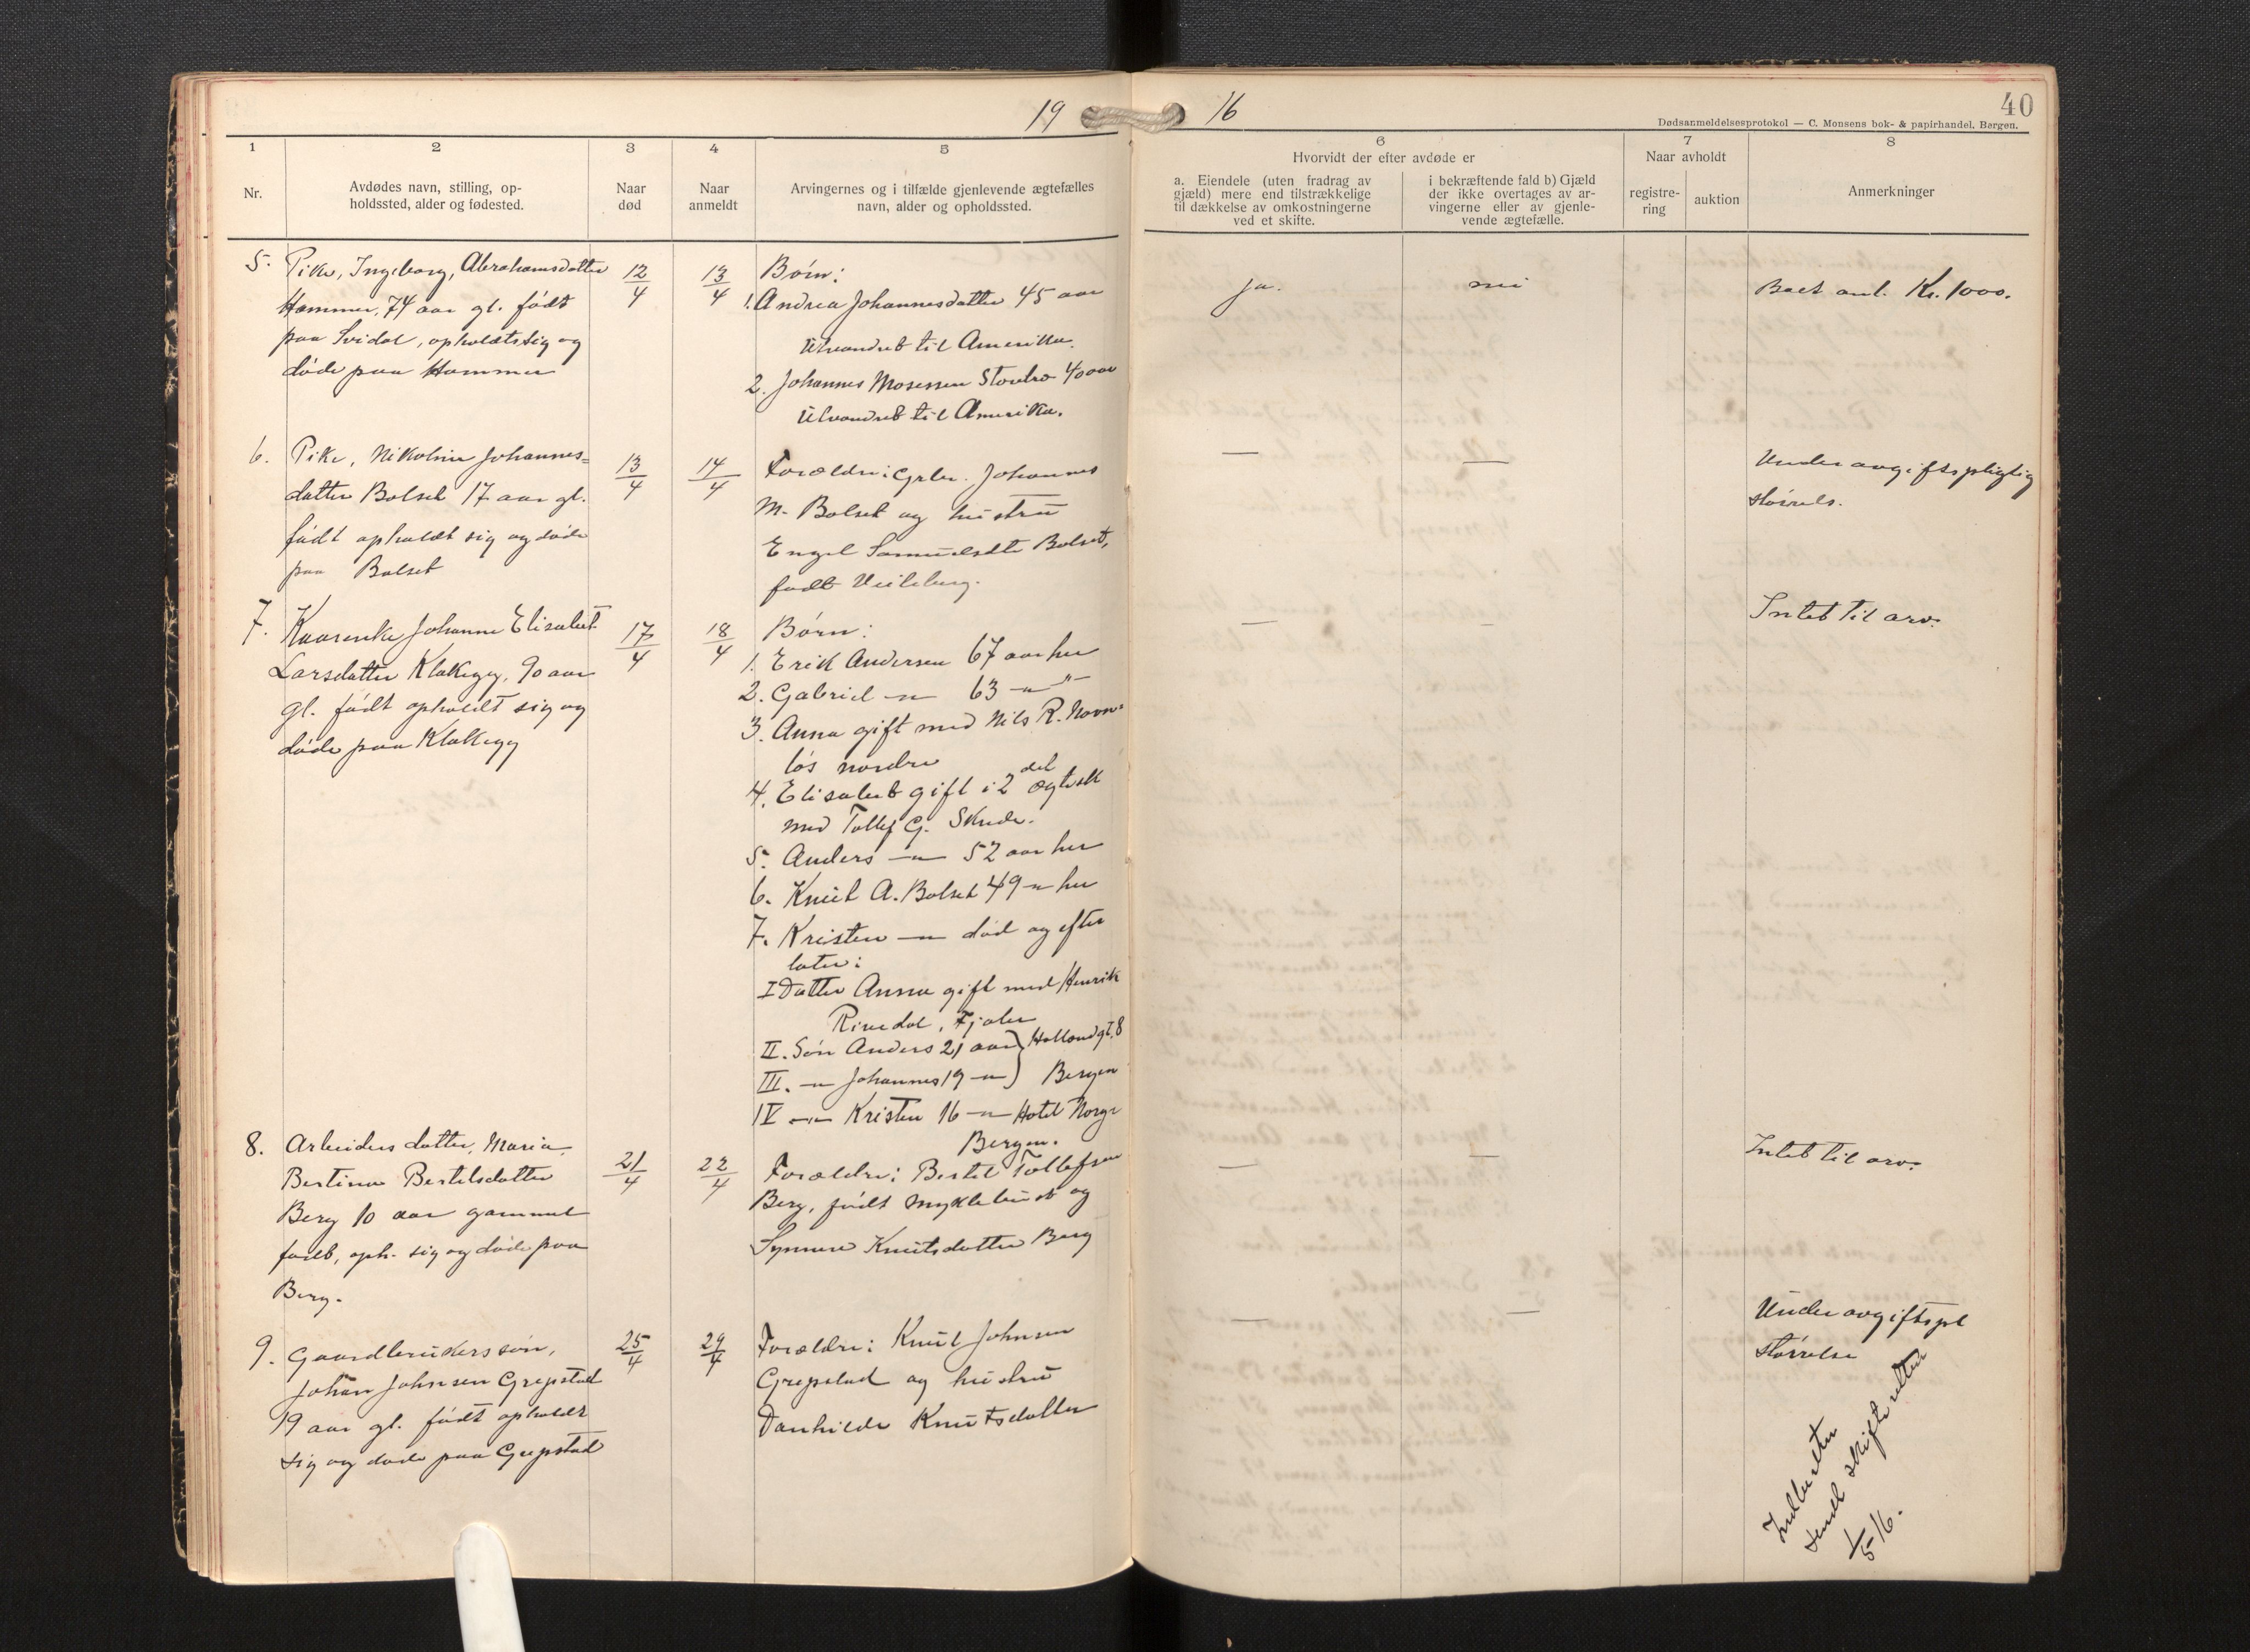 19
16
40
Dødsanmeldelsesprotokol — C. Monsens bok- & papirhandel, Bergen.
1
2
3
4
5
6
7
8
Nr.
Avdødes navn, stilling, op-
holdssted, alder og fødested.
Naar
død
Naar
anmeldt
Arvingernes og i tilfælde gjenlevende ægtefælles
navn, alder og opholdssted.
Hvorvidt der efter avdøde er
a. Eiendele (uten fradrag av
gjæld) mere end tilstrækkelige
til dækkelse av omkostningerne
ved et skifte.
i bekræftende fald b) Gjæld
der ikke overtages av ar-
vingerne eller av gjenle-
vende ægtefælle.
Naar avholdt
registre-
ring
auktion
Anmerkninger
5. Pike, Ingeborg, Abrahamsdatter
Hammer, 74 aar gl. født
paa Svidal, opholdt sig og
døde paa Hammer
12/4
13/4
Børn:
1. Andrea Johannesdatter 45 aar
Utvandret til Amerika.
2. Johannes Mosessen Stovbro 40 aar
Utvandret til Amerika.
ja.
nei
Boet anl. Kr. 1000.
6. Pike, Nikoline Johannes=
datter Bolset 17 aar gl.
født opholdt sig og døde
paa Bolset
13/4
14/4
Forældre: Grbr. Johannes
M. Bolset og hustru
Engel Samuelsdtr Bolset,
født
—
—
Under avgiftspligtig
størrels.
7. Kaarenke Johanne Elisabet
Larsdatter Klakegg, 90 aar
gl. født opholdt sig og
døde paa Klakegg
17/4
18/4
Børn:
1. Erik Andersen 67 aar her
2. Gabriel —"— 63 —"—"—
3. Anna gift med Nils R. Navn=
løs nordre
4. Elisabet gift i 2det Ægtesk
med Tollef G. Skude.
5. Anders —"— 52 aar her
6. Knut A. Bolset 49 —"— her
7. Kristen —"— død og efter
later:
I Datter Anna gift med Henrik
Rivedal, Fjaler
II. Søn Anders 21 aar } Hollendgt. 8
III. —"— Johannes 19 —"— } Bergen
IV —"— Kristen 16 —"— Hotel Norge
Bergen.
—
—
Intet til arv.
8. Arbeiders datter, Maria
Bertina Bertilsdatter
Berg 10 aar gammel
født, oph. sig og døde paa
Berg.
21/4
22/4
Forældre: Bertil Tollefsen
Berg, født Myklebust og
Synneve Knutsdatter Berg
—
—
Intet til arv.
9. Gaardbrukerssøn,
Johan Johnsen Grepstad
19 aar gl. født opholdt
sig og døde paa Grepstad
25/4
29/4
Forældre: Knut Johnsen
Grepstad og hustru
Danhilde Knutsdatter
—
—
Under avgiftspl
størrelse
Indberetn
sendt skifteretten
1/5 16.